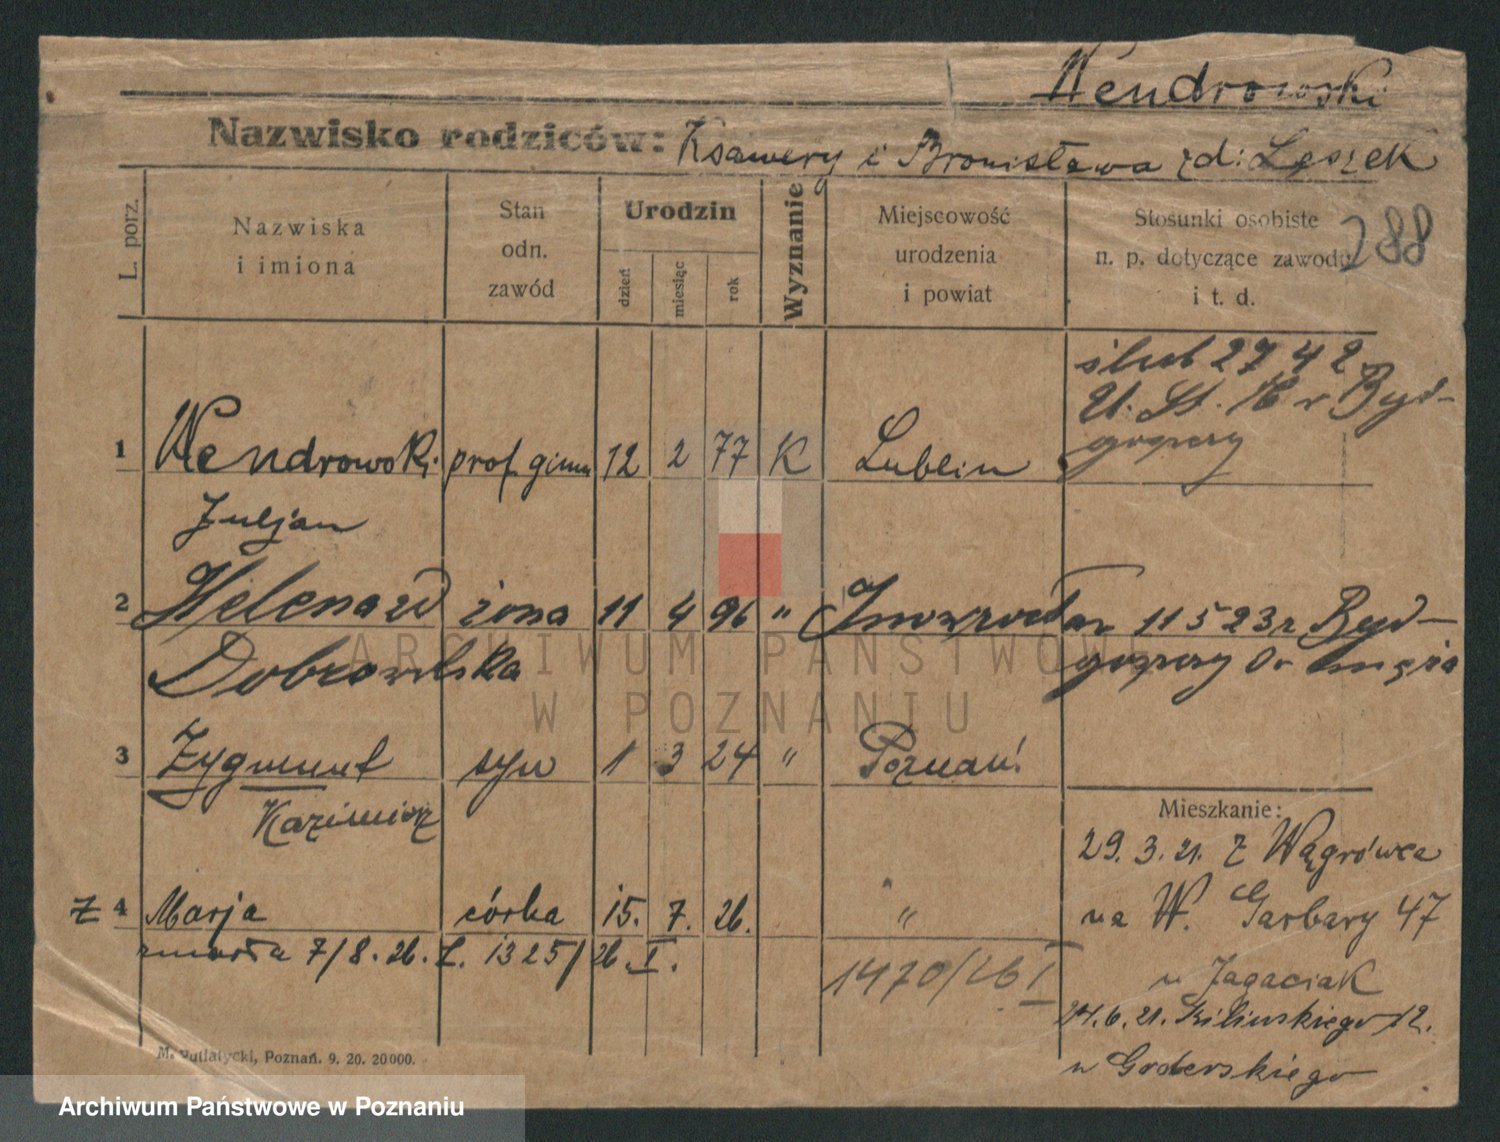 Wendrowski
Nazwisko rodziców: Ksawery i Bronisława zd: Lęszek
L. porz.
Nazwiska
i imiona
Stan
odn.
zawód
Urodzin
dzień
miesiąc
rok
Wyznanie
Miejscowość
urodzenia
i powiat
Stosunki osobiste
n. p. dotyczące zawodu
i t. d.
288
ślub 27 4 2
U. St. w Byd-
goszczy
1 Wendrowski prof. gimn 12 2 77 K Lublin
Juljan
2 Helena zd żona 11 4 96 " Inowrocław 11 5 23 z Byd-
Dobrowolska goszczy do męża
3 Zygmunt syn 1 3 24 " Poznań
Kazimierz
Mieszkanie:
29. 3. 21. z Wągrówca
Z 4 Marja córka 15. 7. 26. " na W. Garbary 47
zmarła 7/8. 26. L. 1325/26 I.
1470/26 I
u Jagaciak
24. 6. 21. Kilińskiego 12.
u Goderskiego
M. Putiatycki, Poznań. 9. 20. 20000.
ARCHIWUM PAŃSTWOWE
W POZNANIU
Archiwum Państwowe w Poznaniu